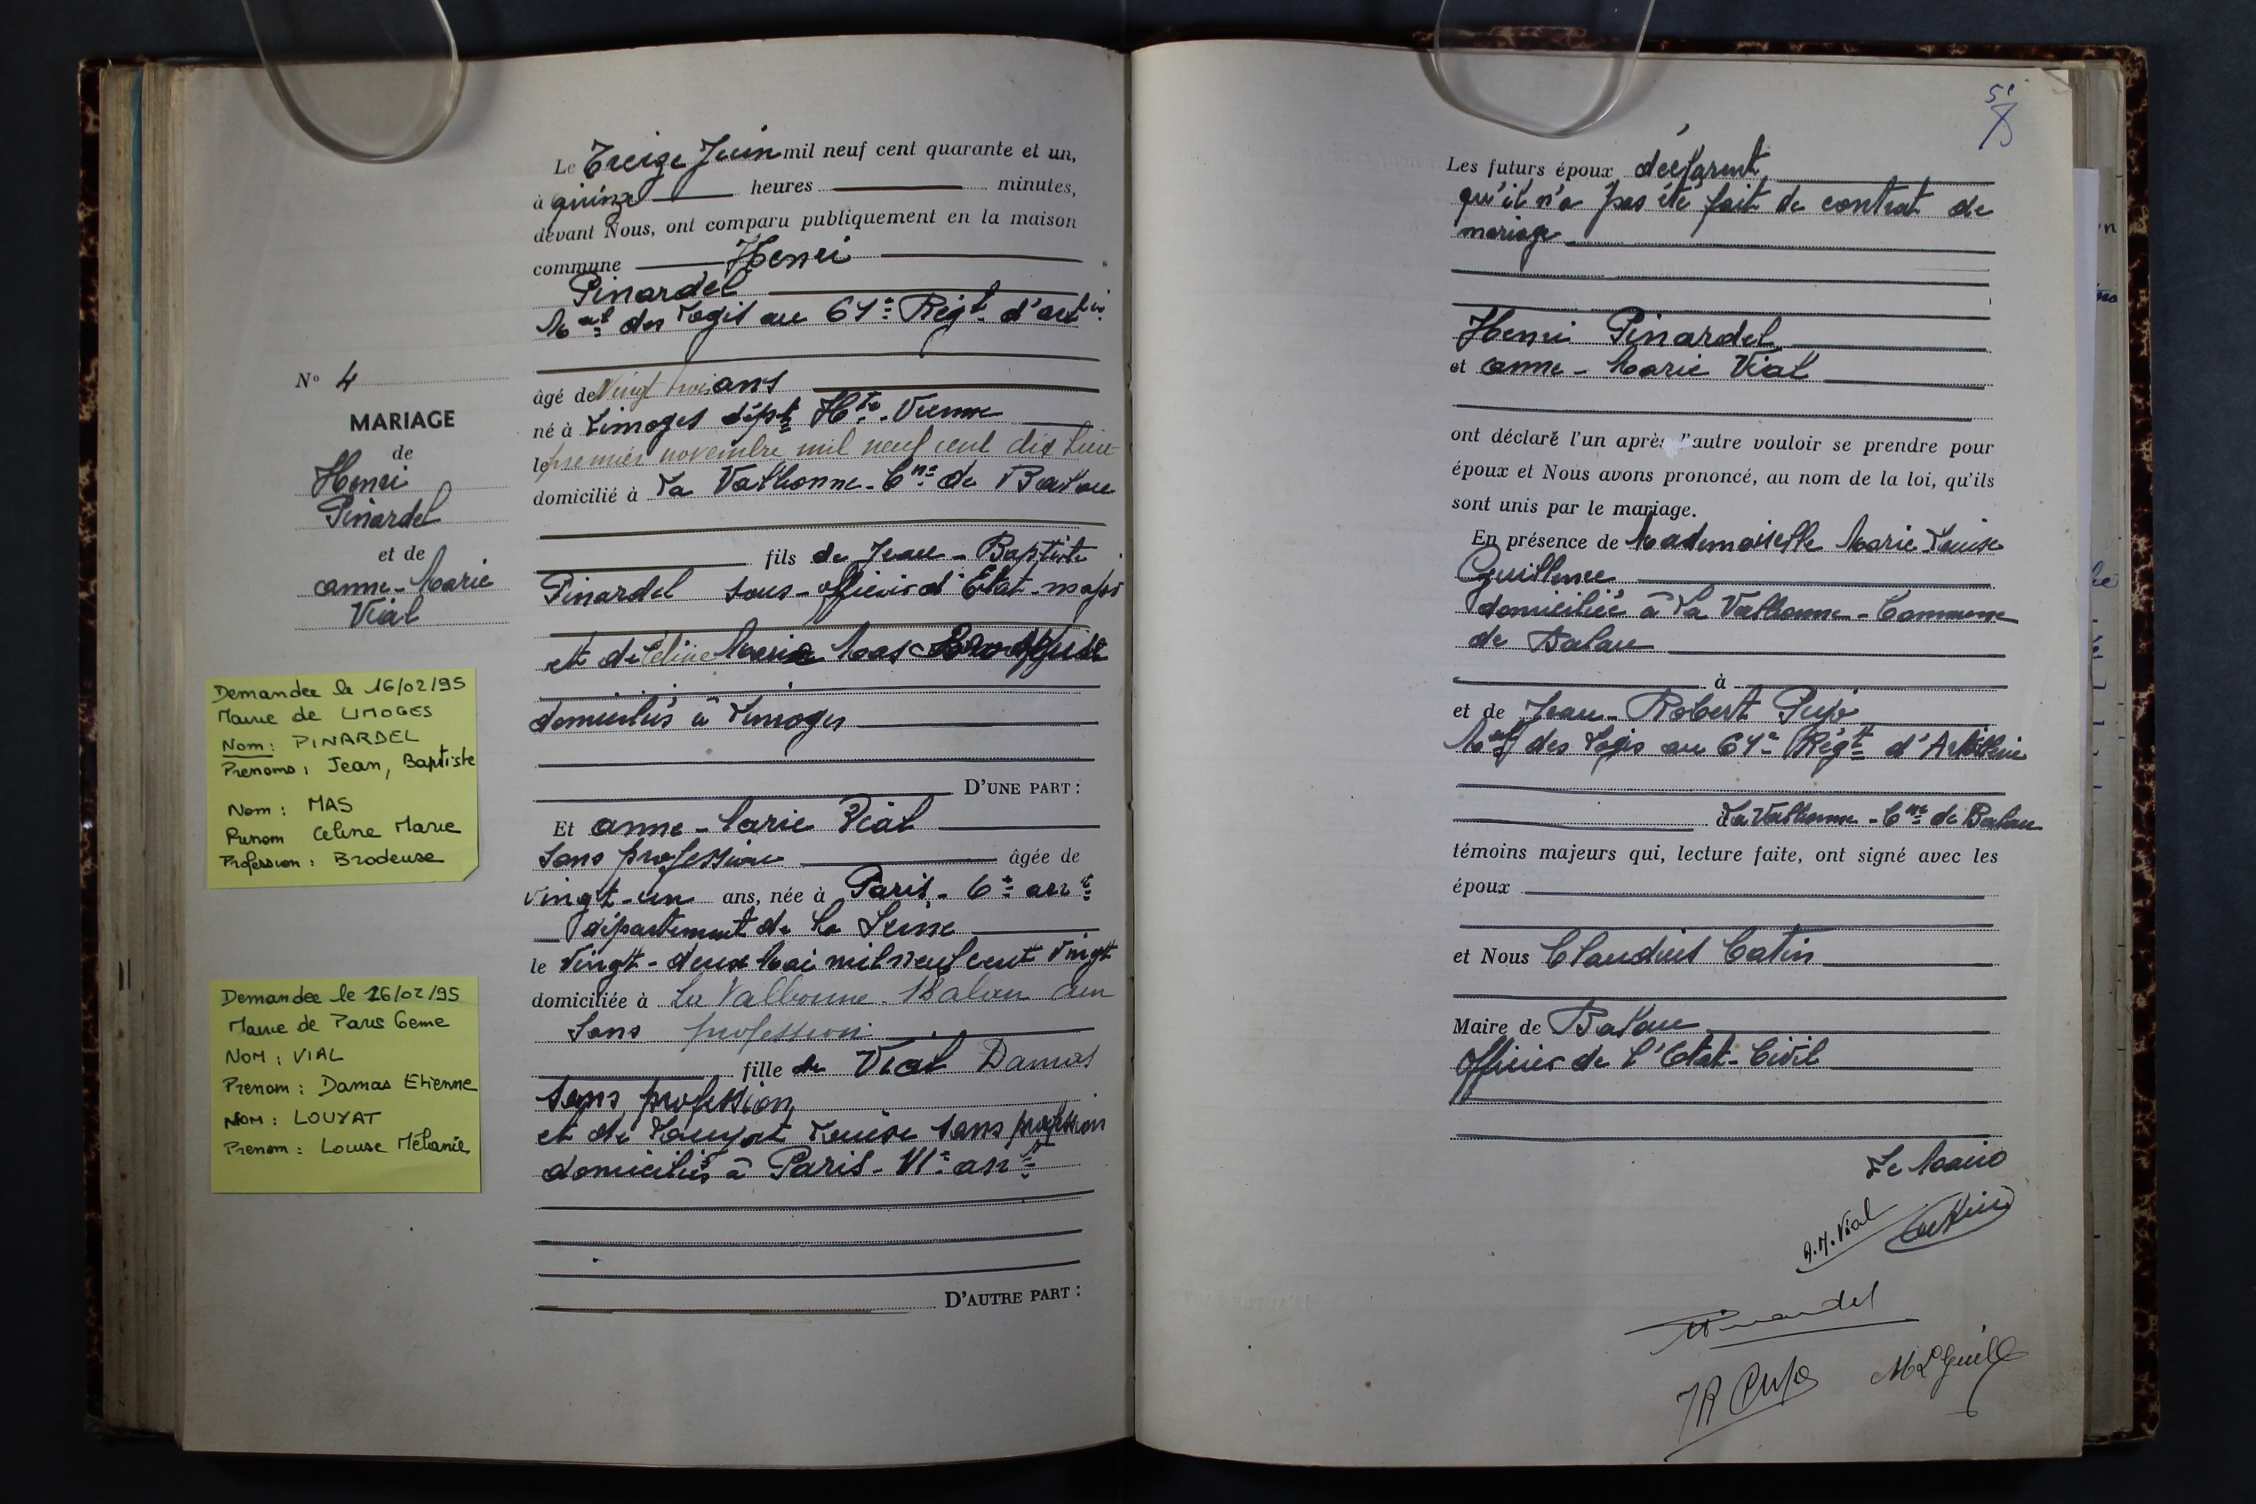 Le Treize Juin mil neuf cent quarante et un,
à quinze heures minutes,
devant Nous, ont comparu publiquement en la maison
commune Henri
Pinardel
Mal des Logis au 64e Régt d'artie
N° 4
MARIAGE
de
Henri
Pinardel
et de
Anne-Marie
Vial
âgé de Vingt trois ans
né à Limoges dépt Hte-Vienne
le premier novembre mil neuf cent dix huit
domicilié à La Valbonne - Cne de Balan
fils de Jean-Baptiste
Pinardel sous-officier d'Etat-major
et de Céline Marie Mas Brodeuse
domiciliés à Limoges
D'UNE PART :
Et Anne-Marie Vial
Sans profession âgée de
vingt-un ans, née à Paris - 6e arrt
département de la Seine
le Vingt-deux Mai mil neuf cent vingt
domiciliée à La Valbonne. Balan Ain
Sans profession
fille de Vial Damas
Sans profession
et de Louyat Louise sans profession
domiciliés à Paris - VIe arrt
D'AUTRE PART :
Demandee le 16/02/95
Mairie de LIMOGES
Nom : PINARDEL
Prenoms : Jean, Baptiste
Nom : MAS
Prenom Celine Marie
Profession : Brodeuse
Demandee le 16/02/95
Mairie de Paris 6eme
NOM : VIAL
Prenom : Damas Etienne
NOM : LOUYAT
Prenom : Louise Mélanie
Les futurs époux déclarent
qu'il n'a pas été fait de contrat de
mariage
Henri Pinardel
et Anne-Marie Vial
ont déclaré l'un après l'autre vouloir se prendre pour
époux et Nous avons prononcé, au nom de la loi, qu'ils
sont unis par le mariage.
En présence de Mademoiselle Marie Louise
domiciliée à La Valbonne - Commune
de Balan
à
et de Jean-Robert Pujo
des Logis au 64e Régt d'Artillerie
La Valbonne - Cne de Balan
témoins majeurs qui, lecture faite, ont signé avec les
époux
et Nous Claudius Catin
Maire de Balan
Officier de l'Etat-Civil
Le Maire
A.M. Vial
Catin
Pinardel
JR Pujo